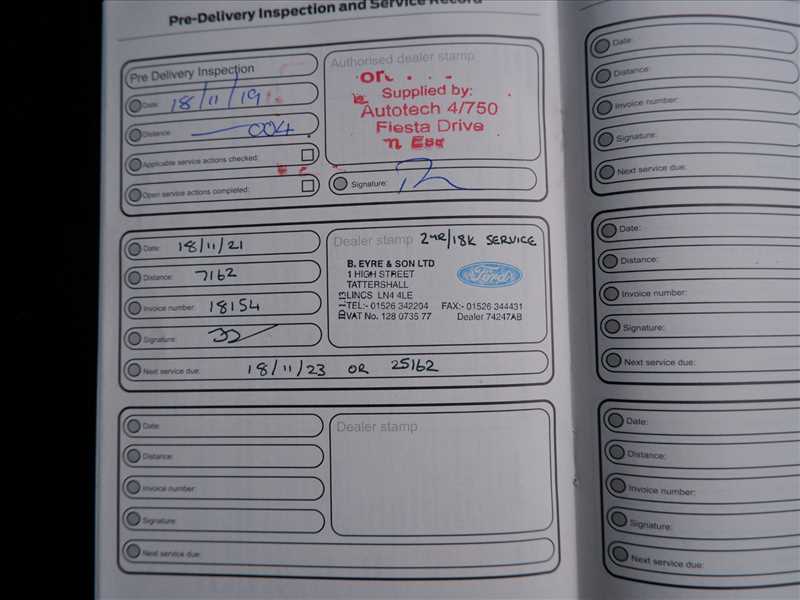 Pre-Delivery Inspection and Service Record
Pre Delivery Inspection
Date: 18/11/19
Distance 004
Applicable service actions checked:
Open service actions completed:
Authorised dealer stamp
Supplied by:
Autotech 4/750
Fiesta Drive
Signature:
Date: 18/11/21
Distance: 7162
Invoice number: 18154
Signature:
Next service due: 18/11/23 OR 25162
Dealer stamp 2YR/18K SERVICE
B. EYRE & SON LTD
1 HIGH STREET
TATTERSHALL
LINCS LN4 4LE
TEL:- 01526 342204 FAX:- 01526 344431
VAT No. 128 0735 77 Dealer 74247AB
Ford
Date:
Distance:
Invoice number:
Signature:
Next service due:
Dealer stamp
Date:
Distance:
Invoice number:
Signature:
Next service due:
Date:
Distance:
Invoice number:
Signature:
Next service due:
Date:
Distance:
Invoice number:
Signature:
Next service due: